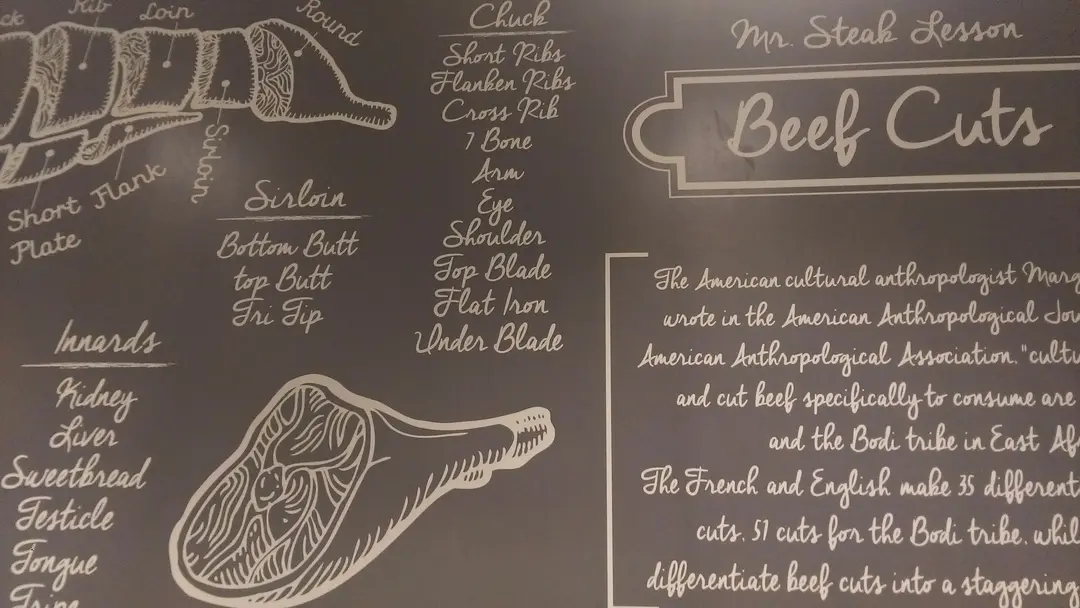 Rib
Loin
Round
Sirloin
Short
Plate
Flank
Sirloin
Bottom Butt
top Butt
Tri Tip
Innards
Kidney
Liver
Sweetbread
Testicle
Tongue
Tripe
Chuck
Short Ribs
Flanken Ribs
Cross Rib
7 Bone
Arm
Eye
Shoulder
Top Blade
Flat Iron
Under Blade
Mr. Steak Lesson
Beef Cuts
The American cultural anthropologist Marg
wrote in the American Anthropological Jou
American Anthropological Association. "cultu
and cut beef specifically to consume are
and the Bodi tribe in East Af
The French and English make 35 different
cuts. 51 cuts for the Bodi tribe. whil
differentiate beef cuts into a staggering